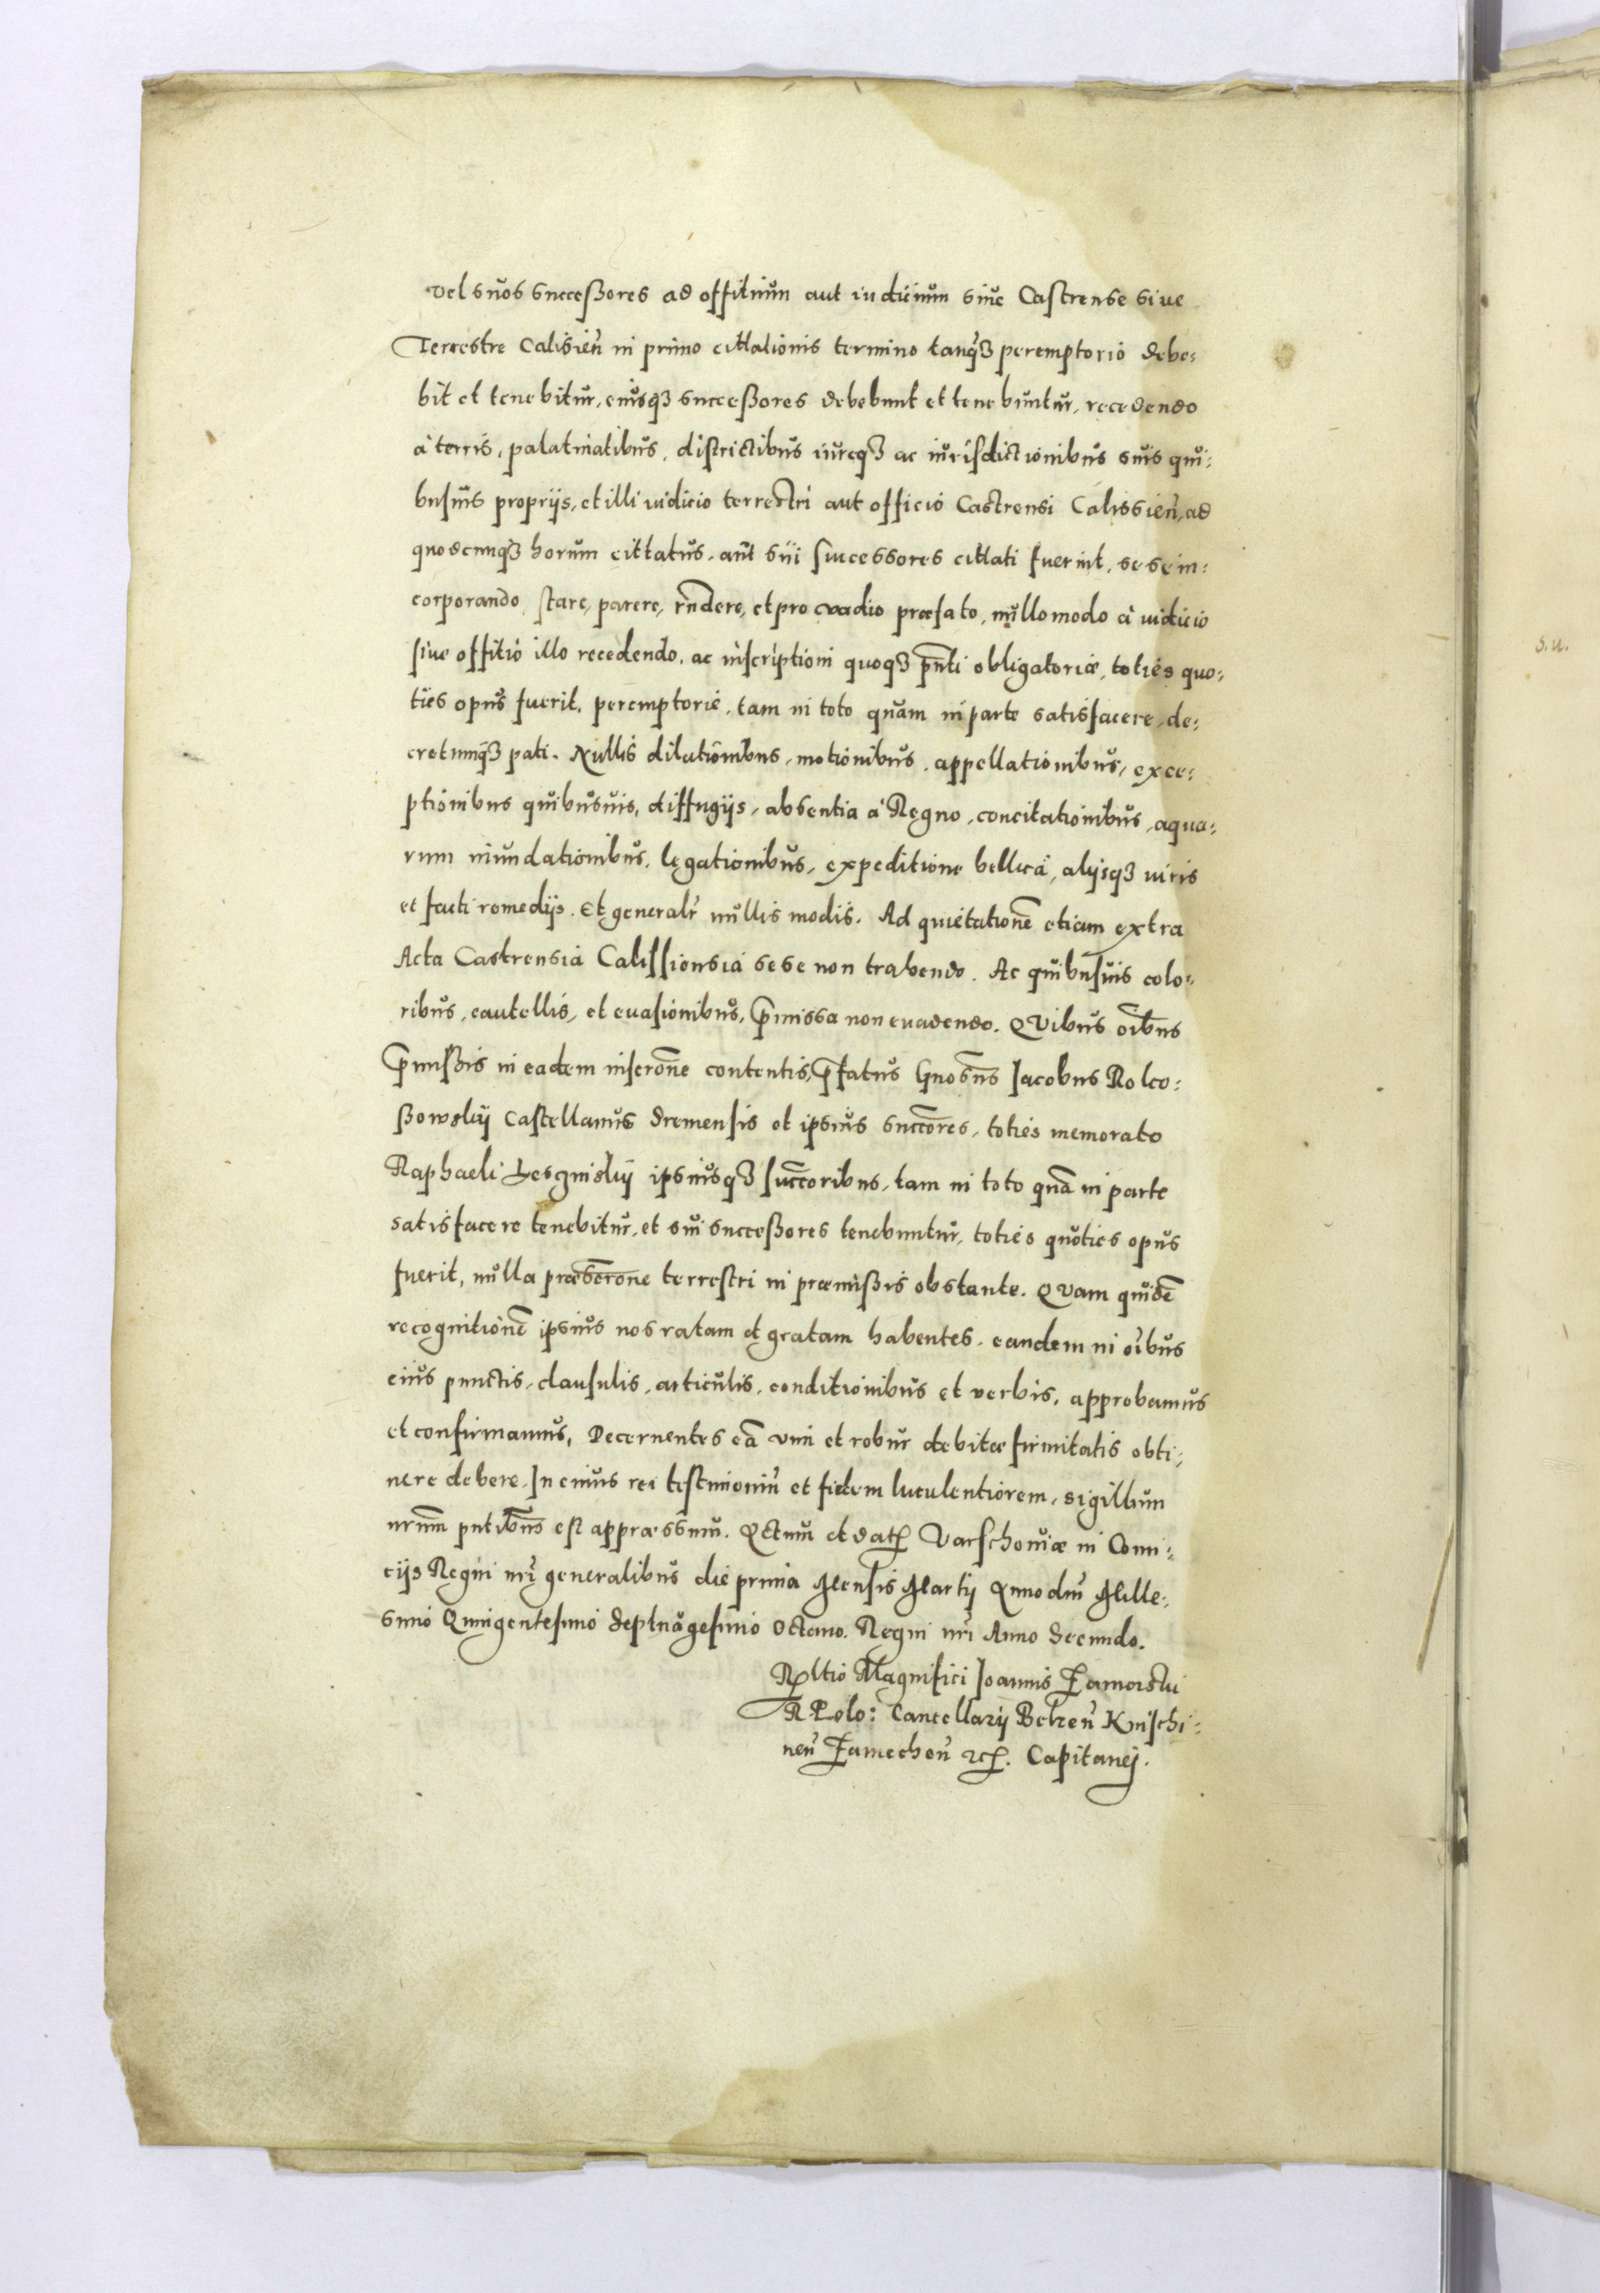 vel suos successores ad offitium aut iudicium siue Castrense siue
Terrestre Calisień in primo cittationis termino tanq̃ꝫ peremptorio debe:
bit et tenebitur, eiusqꝫ successores debebunt et tenebuntur, recedendo
à terris, palatinatibus, districtibus iureqꝫ ac iurisdictionibus suis qui:
busuis proprijs, et illi iudicio terrestri aut officio Castrensi Calissień, ad
quodcunqꝫ horum cittatus, aut sui successores cittati fuerint, sese in:
corporando, stare, parere, rñdere, et pro vadio præfato, nullo modo à iudicio
siue offitio illo recedendo, ac inscriptioni quoqꝫ pñti obligatoriæ, toties quo:
ties opus fuerit, peremptorie, tam in toto quam in parte satisfacere, de:
cretumqꝫ pati. Nullis dilationibus, motionibus, appellationibus, exce:
ptionibus quibusuis, diffugijs, absentia à Regno, concitationibus, aqua:
rum inundationibus, legationibus, expeditione bellica, alijsqꝫ iuris
et facti remedijs. Et generalr̃ nullis modis. Ad quietationẽ etiam extra
Acta Castrensia Calissiensia sese non trahendo. Ac quibusuis colo:
ribus, cautellis, et euasionibus, p̃missa non euadendo. QVibus oĩbus
p̃missis in eadem inscrõne contentis, p̃fatus Gñosus Jacobus Roko:
ssowskij Castellanus Sremensis et ipsius succ̃ores, toties memorato
Raphaeli Lesginskij ipsiusqꝫ succ̃oribus, tam in toto quã in parte
satisfacere tenebitur, et sui successores tenebuntur, toties quoties opus
fuerit, nulla præscrõne terrestri in præmissis obstante. QVam quidẽ
recognitionẽ ipsius nos ratam et gratam habentes, eandem in oĩbus
eius punctis, clausulis, articulis, conditionibus et verbis, approbamus
et confirmamus, Decernentes eã vim et robur debitæ firmitatis obti:
nere debere. In cuius rei testimoniũ et fidem luculentiorem, sigillum
nrum̃ pñtibus est appræssum. Actum et dat̃ Varschouiæ in Comi:
cijs Regni nrĩ generalibus die prima Mensis Martij Anno dnĩ Mille:
simo Quingentesimo Septuagesimo Octauo. Regni nrĩ Anno Secundo.
Rl̃tio Magnifici Joannis Zamoiski
R Polo: Cancellarij Belzeń Knischi:
neń Zamecheń ꝛc̃. Capitanej.
s. u.